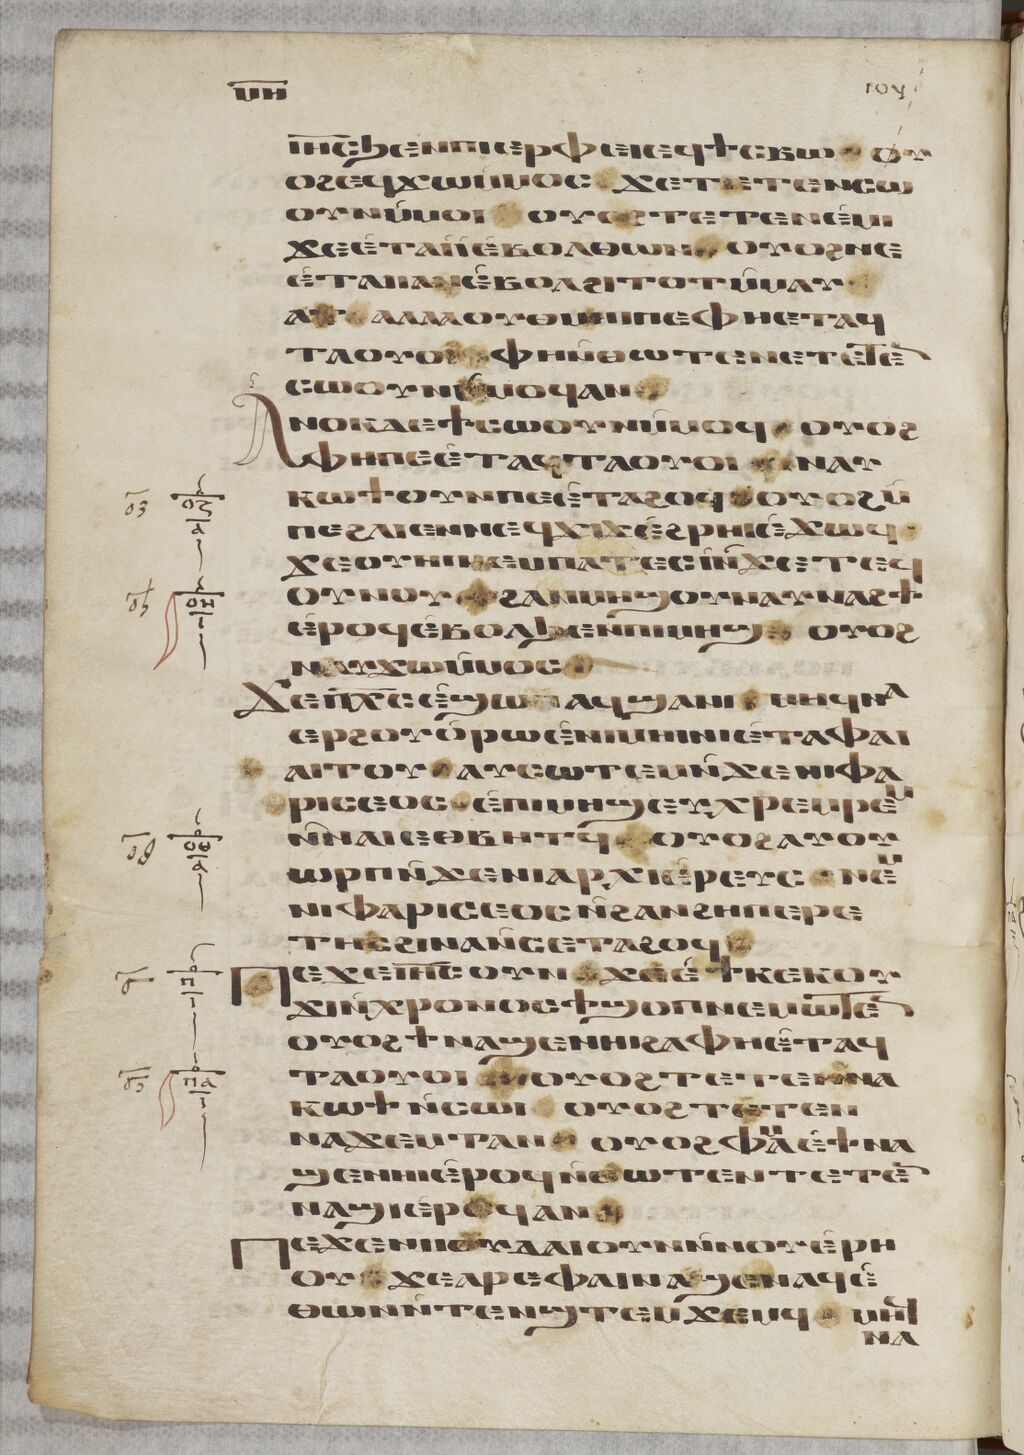 ⲙⲏ
ⲓⲟⲩ
ⲓⲏⲥϧⲉⲛⲡⲓⲉⲣⲫⲉⲓⲉϥϯⲥⲃⲱ ⲟⲩ
ⲟϩⲉϥϫⲱⲙ̇ⲙⲟⲥ ϫⲉⲧⲉⲧⲉⲛⲥⲱ
ⲟⲩⲛⲙ̇ⲙⲟⲓ ⲟⲩⲟϩⲧⲉⲧⲉⲛⲉ̇ⲙⲓ
ϫⲉⲉ̇ⲧⲁⲓⲓ̇ⲉ̇ⲃⲟⲗⲑⲱⲛ ⲟⲩⲟϩⲛⲉ
ⲉ̇ⲧⲁⲓⲓ̇ⲁⲛⲉ̇ⲃⲟⲗϩⲓⲧⲟⲧⲙ̇ⲙⲁⲩ
ⲁⲧ ⲁⲗⲗⲁⲟⲩⲑⲙⲏⲓⲡⲉⲫⲏⲉⲧⲁϥ
ⲧⲁⲟⲩⲟⲓ ⲫⲏⲛ̇ⲑⲱⲧⲉⲛⲉⲧⲉⲧⲉ
ⲥⲱⲟⲩⲛⲙ̇ⲙⲟϥⲁⲛ
ⲁⲛⲟⲕⲇⲉϯⲥⲱⲟⲩⲛⲙ̇ⲙⲟϥ ⲟⲩⲟϩ
ⲫⲏⲡⲉⲉ̇ⲧⲁϥⲧⲁⲟⲩⲟⲓ ⲛⲁⲩ
ⲕⲱϯⲟⲩⲛⲡⲉⲉ̇ⲧⲁϩⲟϥ ⲟⲩⲟϩⲙ̇
ⲡⲉϩⲗⲓⲉⲛⲛⲉϥϫⲓϫⲉ̇ϩⲣⲏⲓⲉ̇ϫⲱϥ
ϫⲉⲟⲩⲏⲓⲛⲉⲙⲡⲁⲧⲉⲥⲓ̇ⲛ̇ϫⲉⲧⲉϥ
ⲟⲩⲛⲟⲩ ϩⲁⲛⲙⲏϣⲟⲩⲛⲁⲩⲛⲁϩϯ
ⲉ̇ⲣⲟϥⲉ̇ⲃⲟⲗϧⲉⲛⲡⲓⲙⲏϣ ⲟⲩⲟϩ
ⲛⲁⲩϫⲱⲙ̇ⲙⲟⲥ
ϫⲉⲡⲭⲥⲉ̇ϣⲱⲡⲁϥϣⲁⲛⲓ ⲙⲏϥⲛⲁ
ⲉⲣϩⲟⲩⲟ̇ⲣⲱⲉ̇ⲛⲓⲙⲏⲓⲛⲓⲉ̇ⲧⲁⲫⲁⲓ
ⲁⲓⲧⲟⲩ ⲁⲩⲥⲱⲧⲉⲙⲛ̇ϫⲉⲛⲓⲫⲁ
ⲣⲓⲥⲉⲟⲥ ⲉ̇ⲡⲓⲙⲏϣⲉⲩⲭⲣⲉⲙⲣⲉⲙ
ⲛ̇ⲛⲁⲓⲉⲑⲃⲏⲧϥ ⲟⲩⲟϩⲁⲩⲟⲩ
ⲱⲣⲡⲛ̇ϫⲉⲛⲓⲁⲣⲭⲓⲉ̇ⲣⲉⲩⲥ ⲛⲉⲙ
ⲛⲓⲫⲁⲣⲓⲥⲉⲟⲥⲛ̇ϩⲁⲛϩⲩⲡⲉⲣⲉ
ⲧⲏⲥϩⲓⲛⲁⲛ̇ⲥⲉⲧⲁϩⲟϥ
ⲡⲉϫⲉⲓⲏⲥⲟⲩⲛ ϫⲉⲉ̇ϯⲕⲉⲕⲟⲩ
ϫⲓⲛ̇ⲭⲣⲟⲛⲟⲥϯϣⲟⲡⲛⲉⲙⲱⲧⲉ
ⲟⲩⲟϩϯⲛⲁϣⲉⲛⲏⲓϩⲁⲫⲏⲉ̇ⲧⲁϥ
ⲧⲁⲟⲩⲟⲓ ⲟⲩⲟϩⲧⲉⲧⲉⲛⲛⲁ
ⲕⲱϯⲛ̇ⲥⲱⲓ ⲟⲩⲟϩⲧⲉⲧⲉⲛ
ⲛⲁϫⲉⲙⲧⲁⲛ ⲟⲩⲟϩⲫⲙⲁⲉ̇ϯⲛⲁ
ϣⲉⲛⲏⲓⲉ̇ⲣⲟϥⲛ̇ⲑⲱⲧⲉⲛⲧⲉⲧⲉ
ⲛⲁϣⲓ̇ⲉ̇ⲣⲟϥⲁⲛ
ⲡⲉϫⲉⲛⲓⲓⲟⲩⲇⲁⲓⲟⲩⲛⲛ̇ⲛⲟⲩⲉ̇ⲣⲏ
ⲟⲩ ϫⲉⲁⲣⲉⲫⲁⲓⲛⲁϣⲉⲛⲁϥⲉ̇
ⲑⲱⲛⲛ̇ⲧⲉⲛϣⲧⲉⲙϫⲉⲙϥ ⲙⲏ
ⲛⲁ
ⲟⲍ
ⲁ
ⲟⲏ
ⲓ
ⲟⲑ
ⲁ
ⲡ
ⲓ
ⲡⲁ
ⲓ